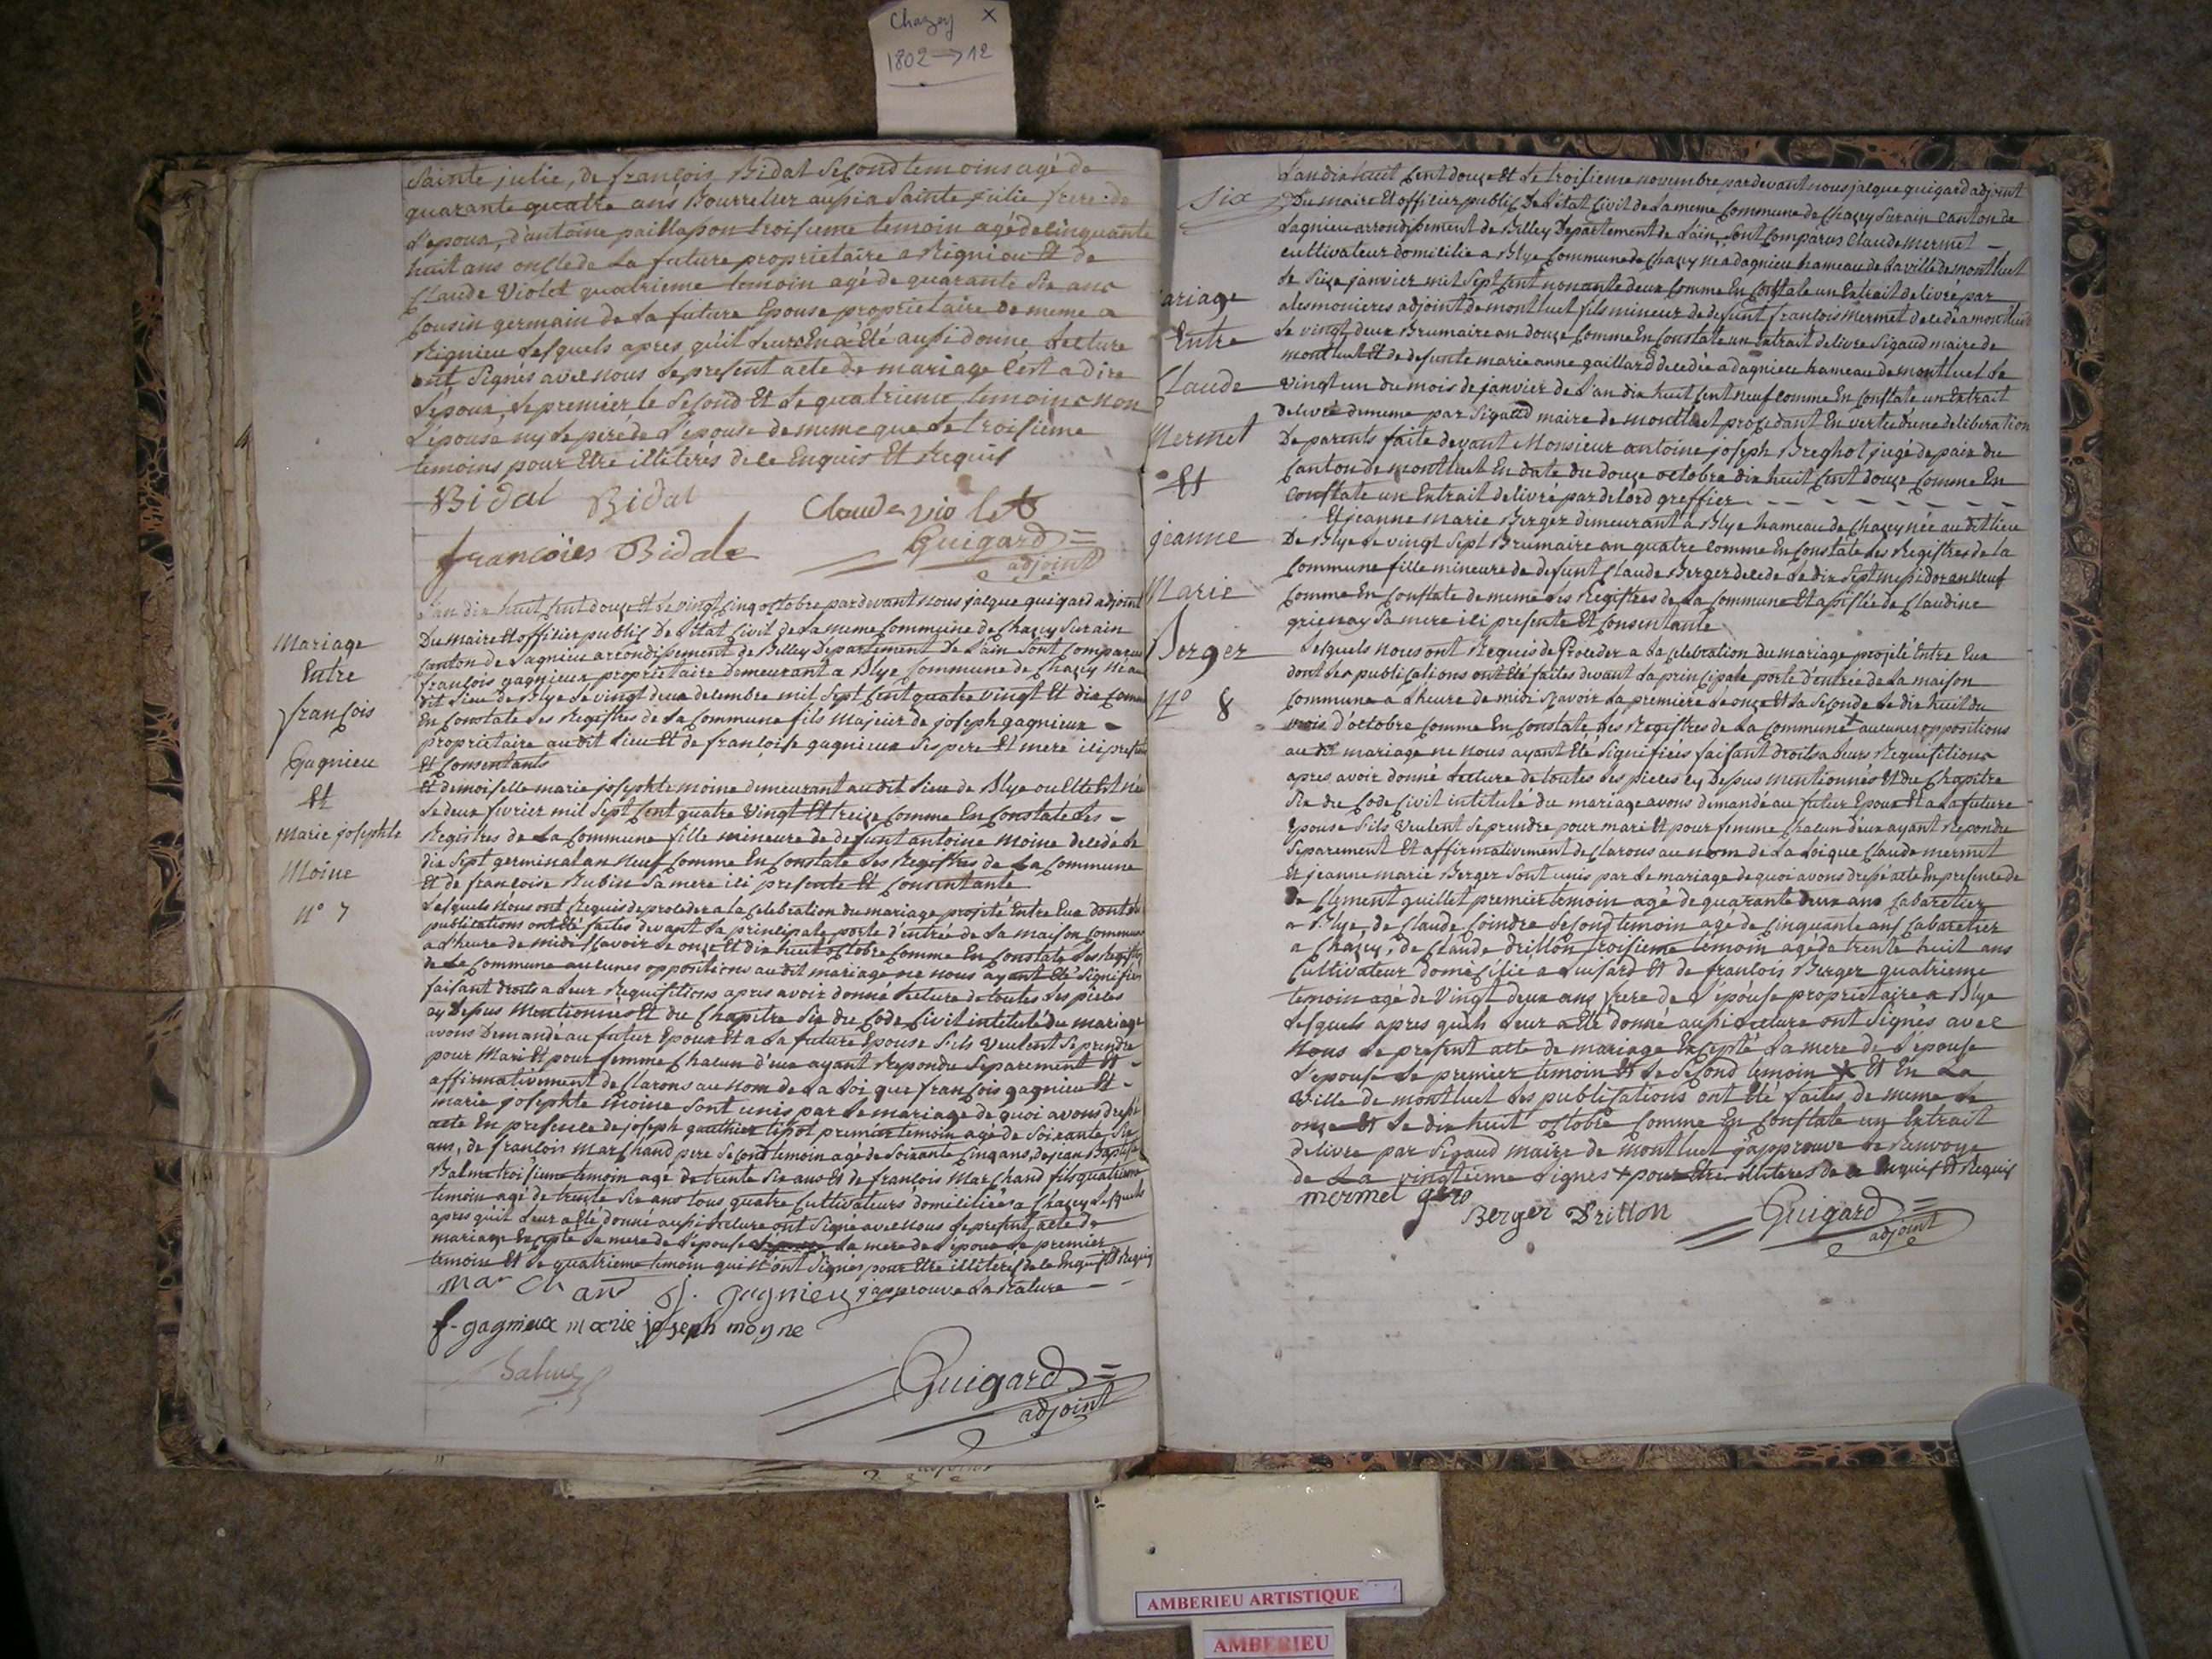 Chazey X
1802 → 12
Sainte julie, de françois Bidal Second temoins agé de
quarante quatre ans Bourrelier aussi a Sainte julie frere de
L'epoux, d'antoine paillasson troisieme temoin agé de Cinquante
huit ans oncle de La future propriétaire a Rignieu Et de
Claude Violet quatrieme temoin agé de quarante Six ans
Cousin germain de La future Epouse propriétaire de meme a
Rignieu Lesquels apres qu'il Leurs En a Eté aussi donne Lecture
ont Signés avec nous Le present acte de mariage C'est a dire
L'epoux, Le premier le Second Et Le quatrieme temoins non
L'epouse ny Le pere de L'epouse de meme que Le troisieme
temoins pour Etre illiteres de ce Enquis Et Requis
Bidal Bidal Claude violet
françöies Bidale Guigard
adjoint
L'an dix huit Cent douze Et Le vingt Cinq octobre pardevant nous jacque guigard adjoint
Du maire Et officier public De L'état Civil de La meme Commune de Chazey Surain
Canton de Lagnieu arrondissement de Belley Departement de L'ain Sont Comparus
françois gagnieux propriétaire demeurant a Blye Commune de Chazey né au
dit Lieu de Blye Le vingt deux decembre mil Sept Cent quatre vingt Et dix Comme
En Constate Les Registres de La Commune fils majeur de joseph gagnieux -
propriétaire au dit Lieu Et de françoise gagnieux Ses pere Et mere ici presents
Et Consentants
Et demoiselle marie josephte moine demeurant au dit Lieu de Blye ou Elle Est née
Le deux fevrier mil Sept Cent quatre Vingt Et treize Comme En Constate Les -
Registres de La Commune fille mineure de defunt antoine moine decedé Le
dix Sept germinal an neuf Comme En Constate Les Registres de La Commune
Et de françoise Rubin Sa mere ici presente Et Consentante
Lesquels Nous ont Requis de proceder a la Celebration du mariage projeté Entre Eux dont Les
publications ont Eté faites devant La principale porte d'entrée de La maison Commune
a L'heure de midi Scavoir Le onze Et dix huit octobre Comme En Constate Les Registres
de La Commune aucunes oppositions au dit mariage ne nous ayant Eté Signifiées
faisant droits a Leur Requisitions apres avoir donné Lecture de toutes Les pièces
cy Dessus Mentionnées Et du Chapitre Six du Code Civil intitulé du mariage
avons Demandé au futur Epoux Et a La future Epouse S'ils Veulent Se prendre
pour Mari Et pour femme Chacun d'eux ayant Repondu Separement Et -
affirmativement declarons au Nom de La Loi que françois gagnieu Et -
marie josephte moine Sont unis par Le mariage de quoi avons dressé
acte En presence de joseph gauthier tipot premier temoin agé de Soixante Six
ans, de françois Marchand pere Second temoin agé de Soixante Cinq ans, de jean Baptiste
Balme troisieme temoin agé de trente Six ans Et de françois Marchand fils quatrieme
temoin agé de trente Six ans tous quatre Cultivateurs domiciliés a Chazey Lesquels
apres qu'il Leur a Eté donné aussi Lecture ont Signé avec nous Le present acte de
mariage Excepté La mere de L'epouse La mere de L'epoux Le premier
temoin Et Le quatrieme temoin qui N'ont Signés pour Etre illiterés de ce Enquis Et Requis
Marchand J. gagnieu j'approuve La Rature
f. gagnieux marie joseph moyne
Balme
Guigard
adjoint
Mariage
Entre
françois
Gagnieu
Et
Marie josephte
Moine
N° 7
Six
ariage
Entre
Claude
Mermet
Et
jeanne
Marie
Berger
N° 8
L'an dix huit Cent douze Et Le troisieme novembre pardevant nous jacque guigard adjoint
Du maire Et officier public De L'état Civil de La meme Commune de Chazey Surain Canton de
Lagnieu arrondissement de Belley Departement de L'ain, Sont Comparus Claude mermet -
cultivateur domicilié a Blye Commune de Chazey né a dagnieu hameau de La ville de montluel
Le Seize janvier mil Sept Cent nonante deux Comme En Constate un Extrait delivré par
alesmonieres adjoint de montluel fils mineur de defunt françois Mermet decedé a montluel
Le vingt deux Brumaire an douze, Comme En Constate un Extrait delivre Sigaud maire de
montluel Et de defunte marie anne gaillard decedée a dagnieu hameau de montluel Le
vingt un du mois de janvier de L'an dix huit Cent neuf Comme En Constate un Extrait
delivré de meme par Sigaud maire de montluel procedant En vertu d'une deliberation
De parents faite devant Monsieur antoine joseph Breghot jugé de paix du
Canton de montluel En date du douze octobre dix huit Cent douze Comme En
Constate un Extrait delivré par delord greffier - - - - - - -
Et jeanne Marie Berger demeurant a Blye hameau de Chazey née au dit Lieu
De Blye Le vingt Sept Brumaire an quatre Comme En Constate Les Registres de la
Commune fille mineure de defunt Claude Berger decedé Le dix Sept messidor an neuf
Comme En Constate de meme Les Registres de La Commune Et assistée de Claudine
grienay Sa mere ici presente Et Consentante
Lesquels nous ont Requis de Proceder a La Celebration du mariage projeté Entre Eux
dont Les publications ont Eté faites devant La principale porte d'entrée de La maison
Commune a L'heure de midi Scavoir La premiere Le onze Et La Seconde Le dix huit du
mois d'octobre Comme En Constate Les Registres de La Commune aucunes oppositions
au dit mariage ne nous ayant Eté Signifiées faisant droits a Leurs Requisitions
apres avoir donné Lecture de toutes Les pieces cy Dessus mentionnés Et du Chapitre
Six du Code Civil intitulé du mariage avons demandé au futur Epoux Et a La future
Epouse S'ils Veulent Se prendre pour mari Et pour femme Chacun d'eux ayant Repondu
Separement Et affirmativement declarons au nom de La Loi que Claude mermet
Et jeanne marie Berger Sont unis par Le mariage de quoi avons dressé acte En presence de
De Clement quillet premier temoin agé de quarante deux ans Cabaretier
a Blye, de Claude Coindre Second temoin agé de Cinquante ans Cabaretier
a Chazey, de Claude drillon troisieme temoin agé de trente huit ans
Cultivateur domicilié a Luisard Et de françois Berger quatrieme
temoin agé de Vingt deux ans frere de L'épouse propriétaire a Blye
Lesquels apres qu'ils Leur a Eté donné aussi Lecture ont Signés avec
Nous Le present acte de mariage Excepté La mere de L'epouse
L'epouse Le premier temoin Et Le Second temoin X Et En La
Ville de montluel Les publications ont Eté faites de meme Le
onze Et Le dix huit octobre Comme En Constate un Extrait
delivre par Sigaud maire de montluel j'approuve Le Renvoye
de La vingtieme Lignes X pour Etre illiteres de ce Enquis Et Requis
mermet
Berger Drillon Guigard
adjoint
AMBERIEU ARTISTIQUE
AMBERIEU